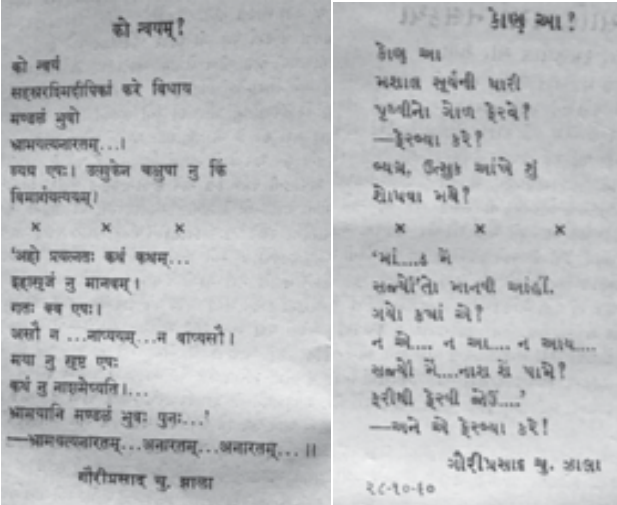 को न्वयम्?
को न्वयं
सहस्ररश्मिदीपिकां करे विधाय
मण्डलं भुवो
भ्रामयत्यनारतम्...।
व्यग्र एषः। उत्सुकेन चक्षुषा नु किं
विमार्गयत्ययम्।
× × ×
'अहो प्रयत्नतः कथं कथम्...
इहासृजं नु मानवम्।
गतः क्व एषः।
असौ न ...नाप्ययम्...न वाप्यसौ।
मया नु सृष्ट एषः
कथं नु नाशमेष्यति...।
भ्रामयानि मण्डलं भुवः पुनः...'
—भ्रामयत्यनारतम्...अनारतम्...अनारतम्...॥
गौरीप्रसाद चु. झाला
કોણ આ!
કોણ આ
મશાલ સૂર્યની ધારી
પૃથ્વીનો ગોળ ફેરવે?
—ફેરવ્યા કરે?
વ્યગ્ર, ઉત્સુક આંખે શું
શોધવા મથે?
× × ×
'માં....ક મેં
સર્જ્યો'તો માનવી આંહીં.
ગયો ક્યાં એ?
ન એ.... ન આ.... ન આય....
સર્જ્યો મેં....નાશ શેં પામે?
ફરીથી ફેરવી જોઉં....'
—અને એ ફેરવ્યા કરે!
ગૌરીપ્રસાદ ચુ. ઝાલા
૨૮-૧૦-૬૦